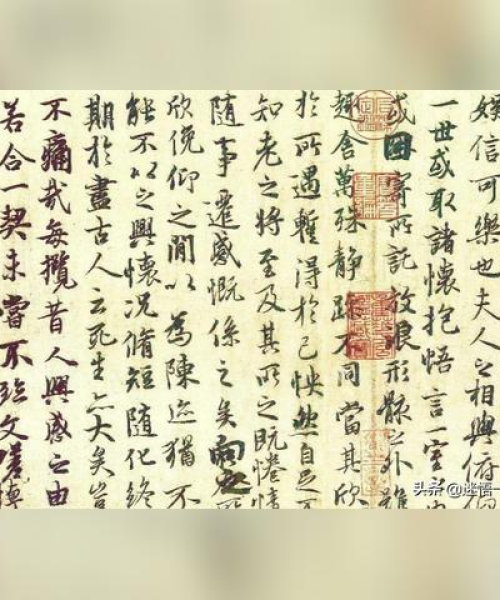 娛信可樂也夫人之相與俯仰
一世或取諸懷抱悟言一室之內
或因寄所託放浪形骸之外雖
趣舍萬殊静躁不同當其欣
於所遇蹔得於己怏然自足不
知老之將至及其所之既惓情
隨事遷感慨係之矣向之所
欣俛仰之閒以為陳迹猶不
能不以之興懷況脩短隨化終
期於盡古人云死生亦大矣豈
不痛哉每攬昔人興感之由
若合一契未嘗不臨文嗟悼
头条 @迷悟一